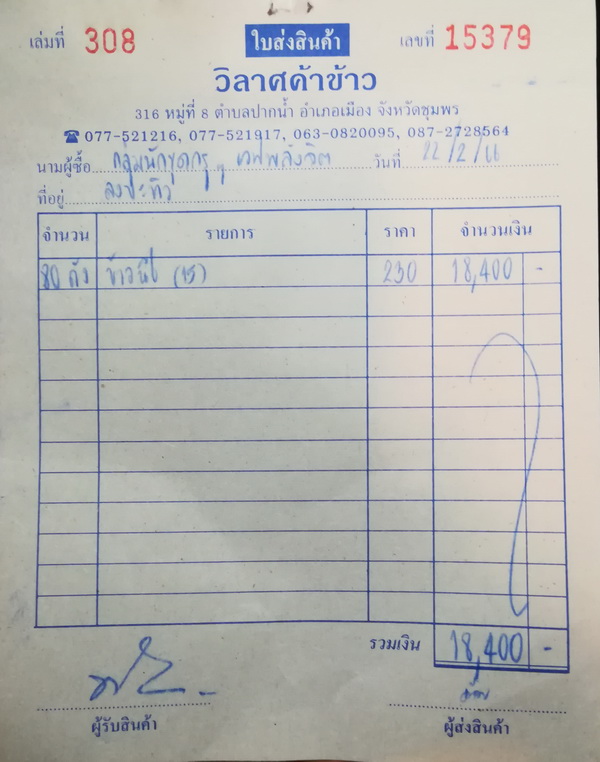 เล่มที่ 308 ใบส่งสินค้า เลขที่ 15379
วิลาศค้าข้าว
316 หมู่ที่ 8 ตำบลปากน้ำ อำเภอเมือง จังหวัดชุมพร
☎ 077-521216, 077-521917, 063-0820095, 087-2728564
นามผู้ซื้อ กลุ่มนักขุดกรุ วันที่ 22/2/66
ที่อยู่
จำนวน รายการ ราคา จำนวนเงิน
80 ถัง (15) 230 18,400 -
รวมเงิน 18,400 -
ผู้รับสินค้า ผู้ส่งสินค้า